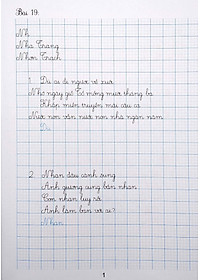 Bài 19:
Nh
Nhà Trang
Nhơn Trạch
1. Dù ai đi ngược về xuôi
Nhớ ngày giỗ Tổ mồng mười tháng ba
Khắp miền truyền mãi câu ca
Nước non vẫn nước non nhà ngàn năm
Dù
2. Nhạn đậu cành sung
Anh giương cung bắn nhạn
Con nhạn luỵ rồi
Anh làm bạn với ai?
Nhạn
1